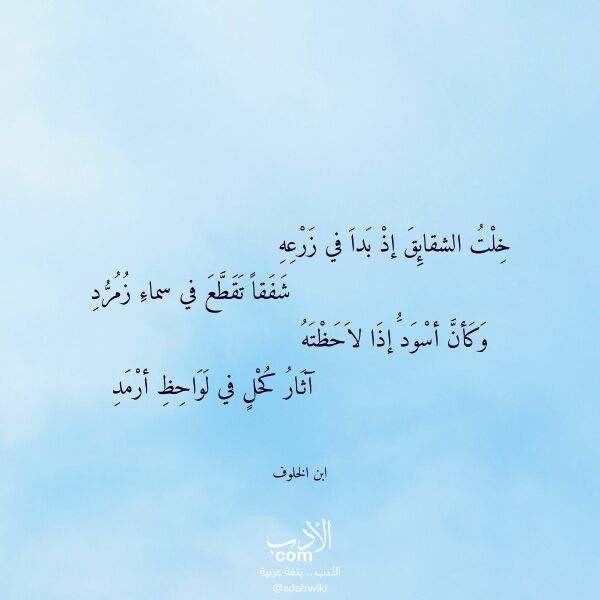 خِلْتُ الشقايِقَ إذْ بَداَ في زَرْعِهِ
شَفَقاً تَقَطَّعَ في سماءِ زُمُرُّدِ
وَكَأنَّ أسْوَدَُ إذَا لاَحَظْتَهُ
آثَارُ كُحْلٍ في لَوَاحِظِ أرْمَدِ
ابن الخلوف
الأدب
com
الأدب .. بلغة عربية
@adabwiki